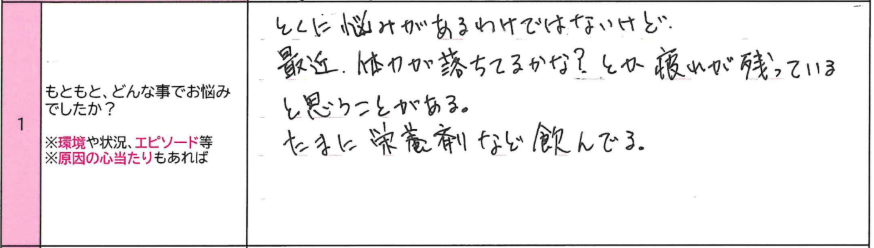 1
もともと、どんな事でお悩み
でしたか？
※環境や状況、エピソード等
※原因の心当たりもあれば
とくに悩みがあるわけではないけど.
最近.体力が落ちてるかな？とか疲れが残っている
と思うことがある。
たまに栄養剤など飲んでる。